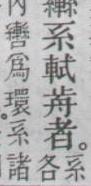 轡系軾歬者。
系
各
內轡爲環。系諸